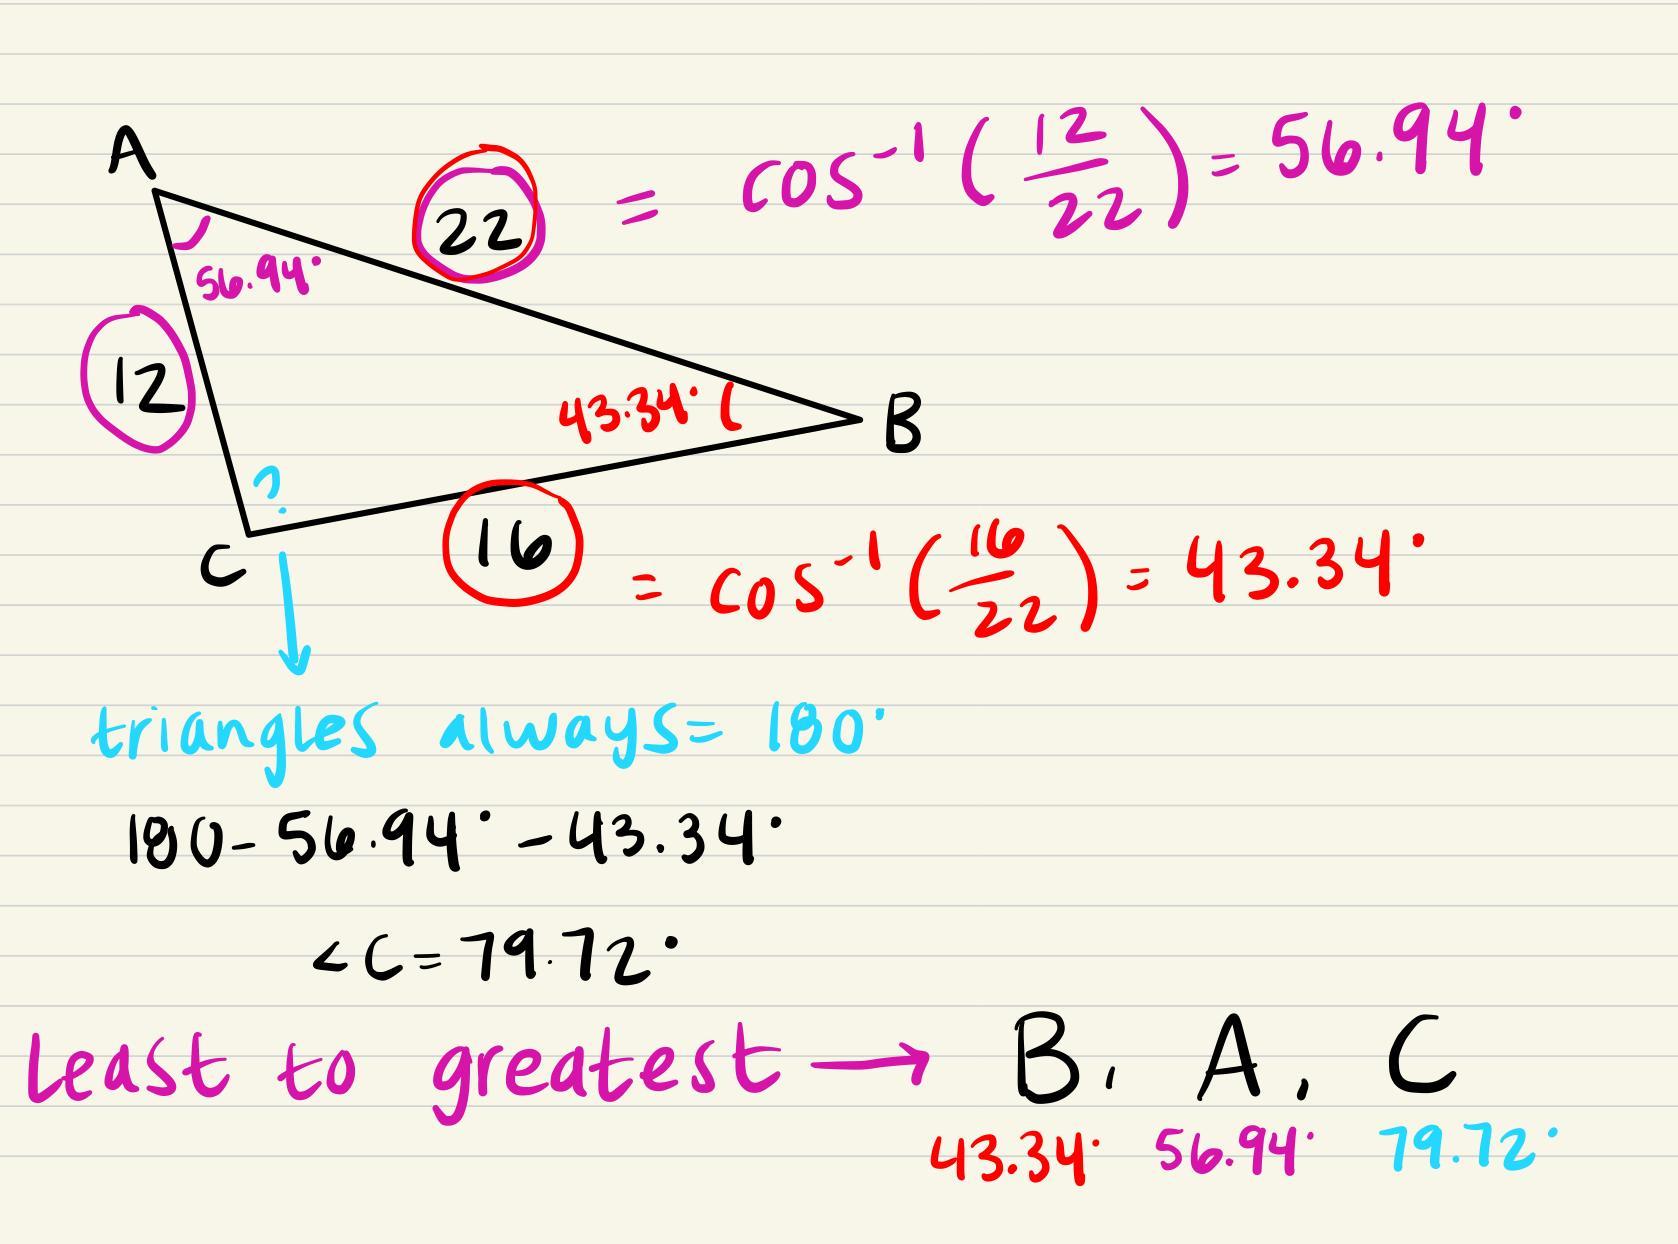 A
22 = cos⁻¹ (12/22) = 56.94°
56.94°
12
43.34°
B
?
C
16 = cos⁻¹ (16/22) = 43.34°
triangles always = 180°
180 - 56.94° - 43.34°
<C = 79.72°
Least to greatest → B, A, C
43.34° 56.94° 79.72°